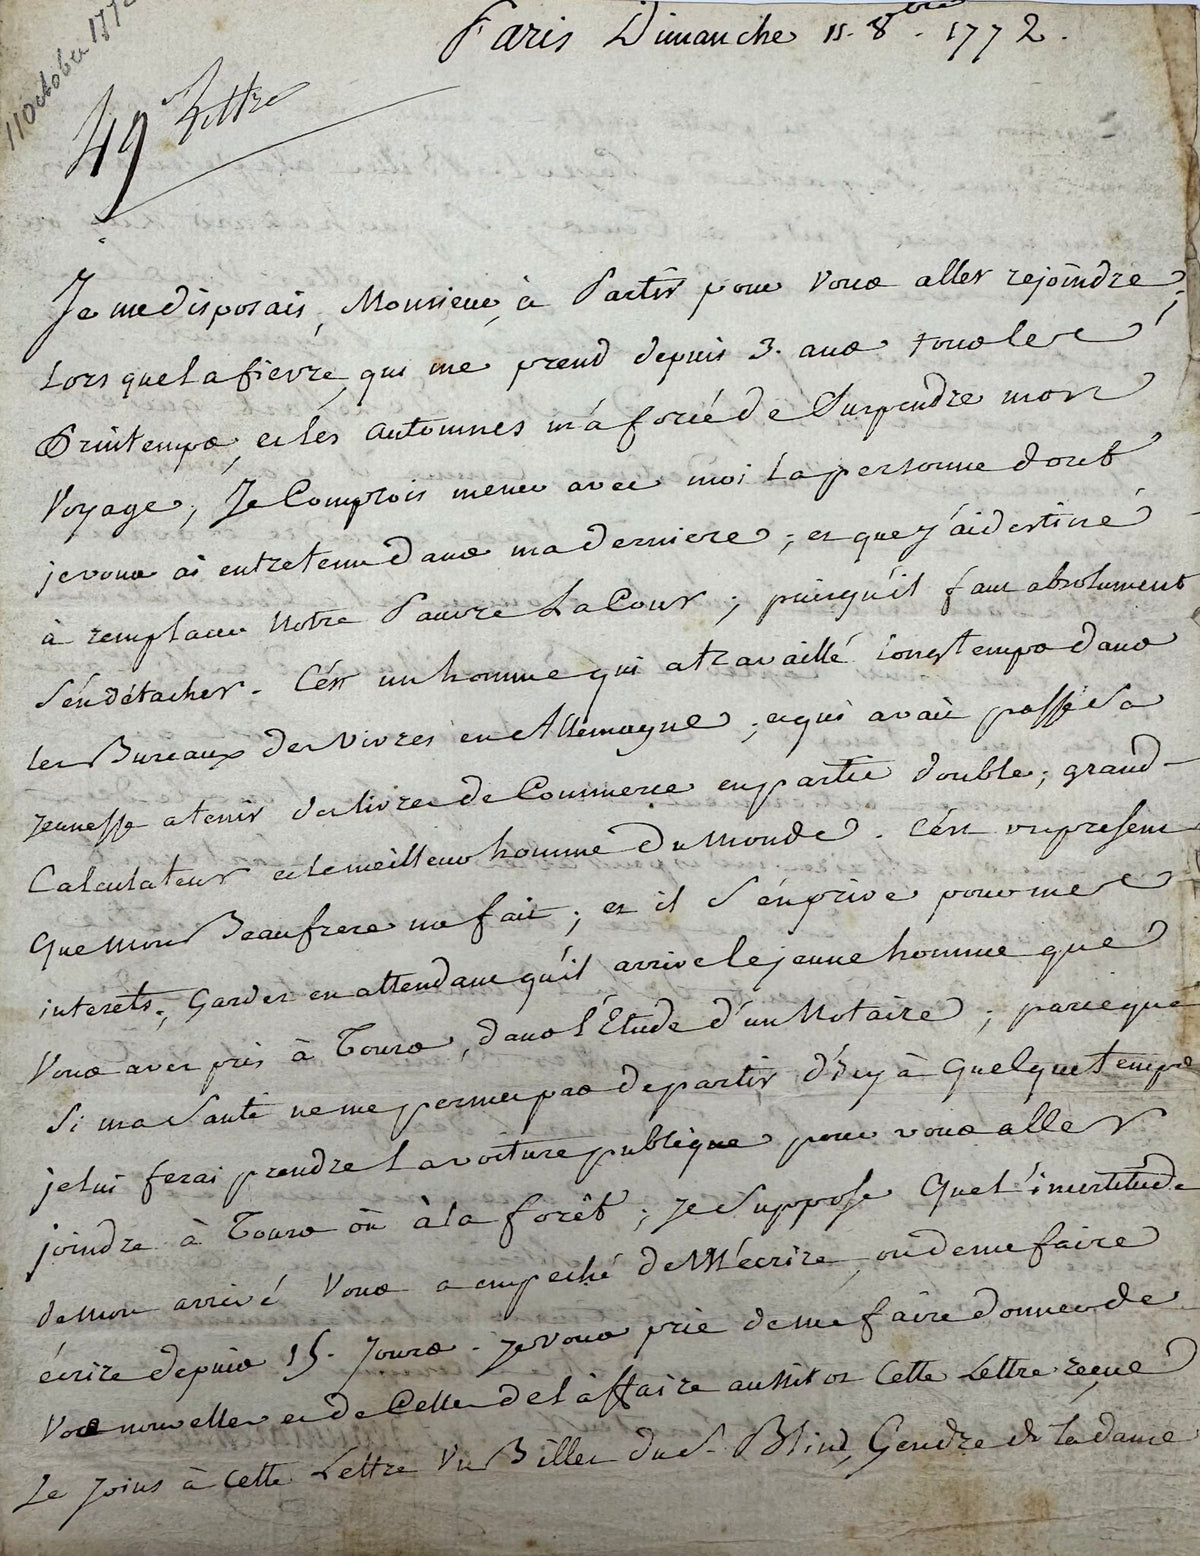 11 October 1772
Paris Dimanche 11. 8bre. 1772.
49e Lettre
Je me disposais, Monsieur, à Partir pour Vous aller rejoindre,
Lors que La fievre, qui me prend depuis 3. ans tous les
Printemps, et les automnes m'a forcé de Suspendre mon
Voyage; Je Comptois mener avec moi La personne dont
je vous ai entretenu dans ma derniere; et que j'ai destiné
à remplacer Notre Pauvre La Cour; puisqu'il faut absolument
s'en détacher. C'est un homme qui a travaillé longtemps dans
les Bureaux des Vivres en Allemagne; et qui avait passé Sa
jeunesse a tenir des livres de Commerce en partie double; grand
Calculateur et le meilleur homme Du Monde. C'est un present
Que Mon Beaufrere me fait; et il S'en prive pour mes
interets; Gardez en attendant qu'il arrive le jeune homme que
Vous avez pris à Tours, dans l'Etude d'un Notaire; parce que
Si ma Santé ne me permet pas de partir d'icy à Quelque temps
je lui ferai prendre La voiture publique pour vous aller
joindre à Tours où à la forêt; Je Suppose Que L'incertitude
de mon arrivé Vous a empeché de M'écrire, ou de me faire
écrire depuis 15. Jours. Je vous prie de me faire donner de
Vos nouvelles et de Celles de l'affaire aussitot Cette Lettre reçue
Je Joins à Cette Lettre Un Billet du Sr. Blind, Gendre de la dame